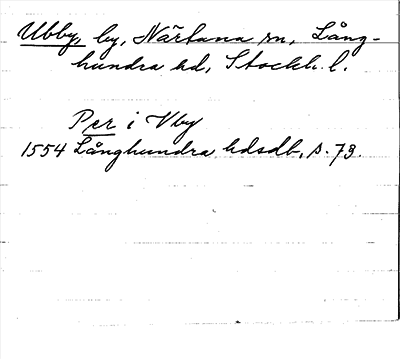 Ubby, by, Närtuna sn, Lång-
hundra hd, Stockh. l.
Per i Vby
1554 Långhundra hdsdb, s. 73.